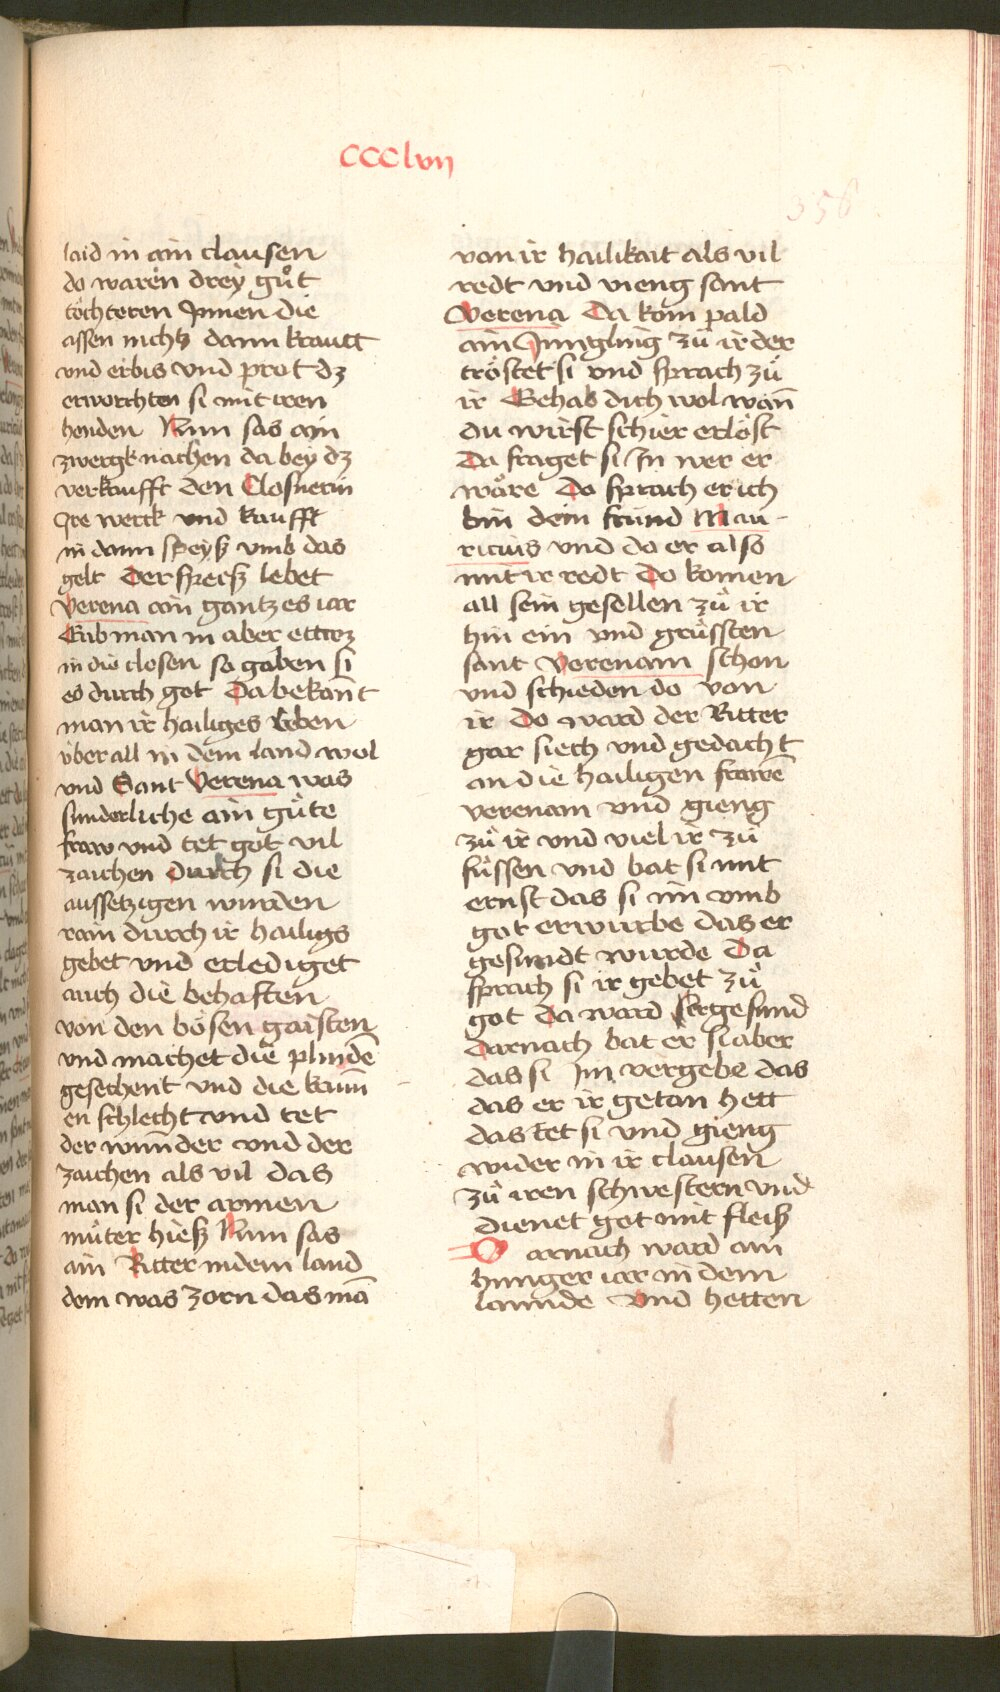 CCClvij
356
laid in ain clausen
do waren drey gůt
töchteren Jnnen die
assen nichtz dann krautt
vnd erbis vnd prot dz
erworchten si mit iren
henden Nun sas ain
zwergk nachen da bey dz
verkaufft den Closnerin
Jre werck vnd kaufft
in dann speyß vmb das
gelt Der sperß lebet
Verena ain gantzes iar
Gab man in aber ettwz
in die closen so gaben si
es durch got Da bekant
man ir hailiges leben
über all in dem land wol
vnd Sant Verena was
sunderliche ain gůte
fraw vnd tet got vil
zaichen durch si die
aussetzigen wurden
rain durch ir hailigs
gebet vnd erlediget
auch die behaften
von den bösen gaisten
vnd machet die plindē
gesechent vnd die krum̄
en schlecht vnd tet
der wunder vnd der
zaichen als vil das
man si der armen
můter hieß Nun sas
ain Ritter in dem land
dem was zorn das mā
von ir hailikait als vil
redt vnd vieng sant
Verena Da kom pald
ain Jüngling zů ir der
tröstet si vnd sprach zů
ir Gehab dich wol wañ
du wirst schier erlöst
Da fraget si Jn wer er
wäre Do sprach er ich
bin dein fründ Mau-
ricius vnd do er also
mit ir redt Do komen
all sein gesellen zů ir
hin ein vnd grůssten
sant Verenam schon
vnd schieden do von
ir Do ward der Ritter
gar siech vnd gedacht
an die hailigen frawē
verenam vnd gieng
zů ir vnd viel ir zů
fůssen vnd bat si mit
ernst das si im vmb
got erwurbe das er
gesundt wurde Da
sprach si ir gebet zů
got Da ward er gesund
Darnach bat er si aber
das si Jm vergebe das
das er ir getan hett
das tet si vnd gieng
wider in ir clausen
zů iren schwestern vnd
dienet got mit fleiß
Darnach ward ain
hunger iar in dem
lannde Vnd hetten